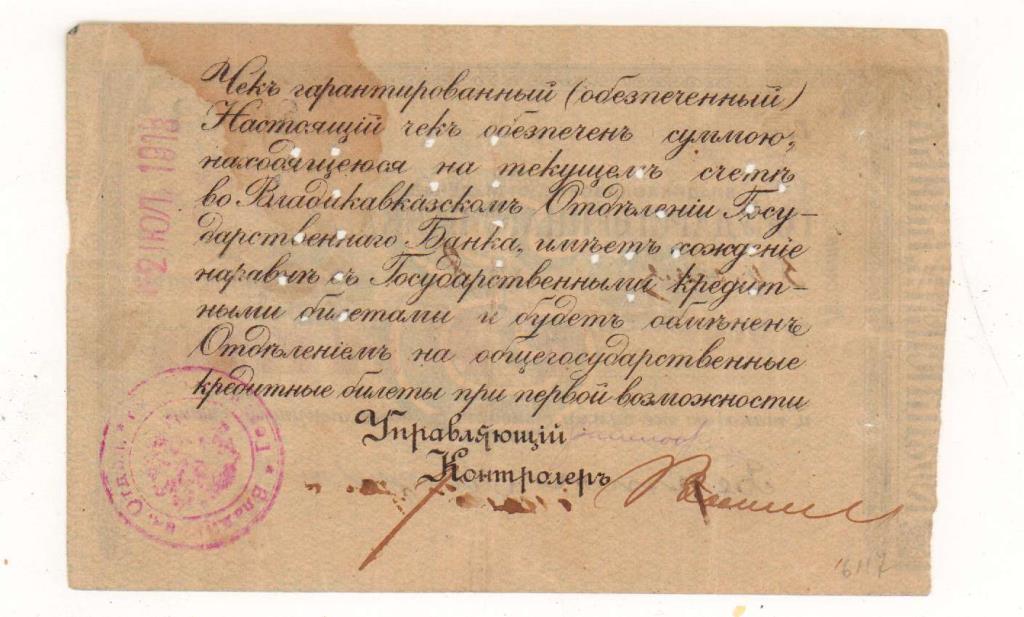 Чекъ гарантированный (обезпеченный)
Настоящій чекъ обезпеченъ суммою,
находящеюся на текущемъ счетѣ
во Владикавказскомъ Отдѣленіи Госу-
дарственнаго Банка, имѣетъ хожденіе
наравнѣ съ Государственными кредит-
ными билетами и будетъ обмѣненъ
Отдѣленіемъ на общегосударственные
кредитные билеты при первой возможности
Управляющій
Контролеръ
2 ІЮЛ. 1918
6117